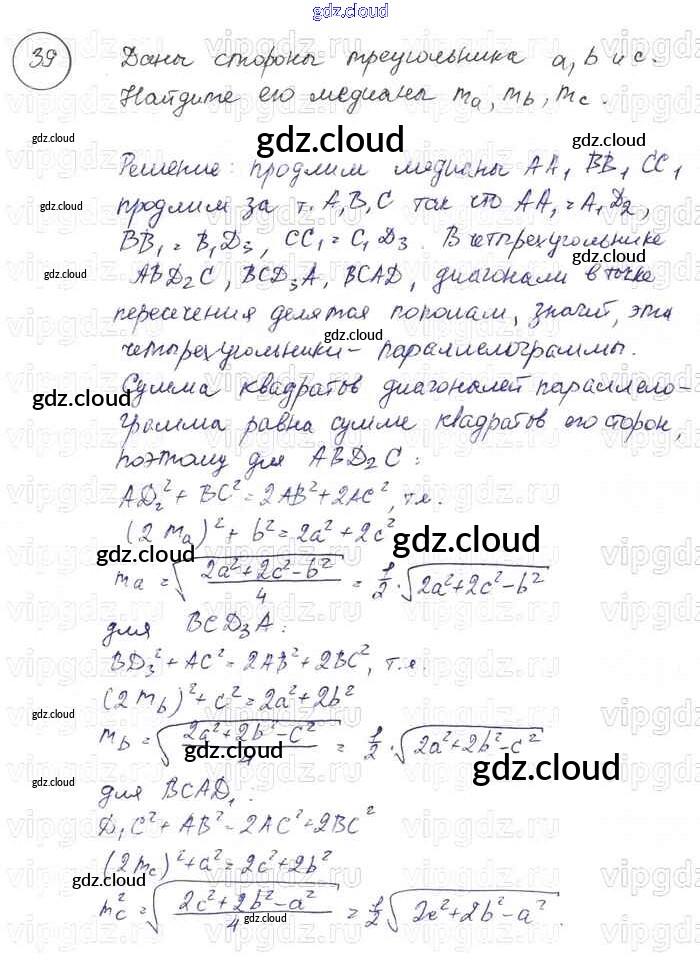 gdz.cloud
39
Даны стороны треугольника a, b и c.
Найдите его медианы mₐ, m_b, m_c.
gdz.cloud
gdz.cloud
Решение: продлим медианы AA₁ BB₁ CC₁
gdz.cloud
продлим за т. A, B, C так что AA₁ = A₁D₂,
BB₁ = B₁D₃, CC₁ = C₁D₃. В четырехугольнике
gdz.cloud
gdz.cloud
ABD₂C, BCD₃A, BCAD, диагонали в точке
пересечения делятся пополам, значит, эти
gdz.cloud
четырехугольники - параллелограммы.
Сумма квадратов диагоналей параллело-
gdz.cloud
грамма равна сумме квадратов его сторон,
поэтому для ABD₂C:
AD₂² + BC² = 2AB² + 2AC², т.е.
(2mₐ)² + b² = 2a² + 2c²
gdz.cloud
gdz.cloud
mₐ = √((2a² + 2c² - b²)/4) = 1/2 · √(2a² + 2c² - b²)
для BCD₃A:
BD₃² + AC² = 2AB² + 2BC², т.е.
(2m_b)² + c² = 2a² + 2b²
gdz.cloud
m_b = √((2a² + 2b² - c²)/4) = 1/2 · √(2a² + 2b² - c²)
gdz.cloud
gdz.cloud
gdz.cloud
для BCAD₁:
D₁C² + AB² = 2AC² + 2BC²
(2m_c)² + a² = 2c² + 2b²
gdz.cloud
m_c² = √((2c² + 2b² - a²)/4) = 1/2 √(2c² + 2b² - a²).
gdz.cloud
gdz.cloud